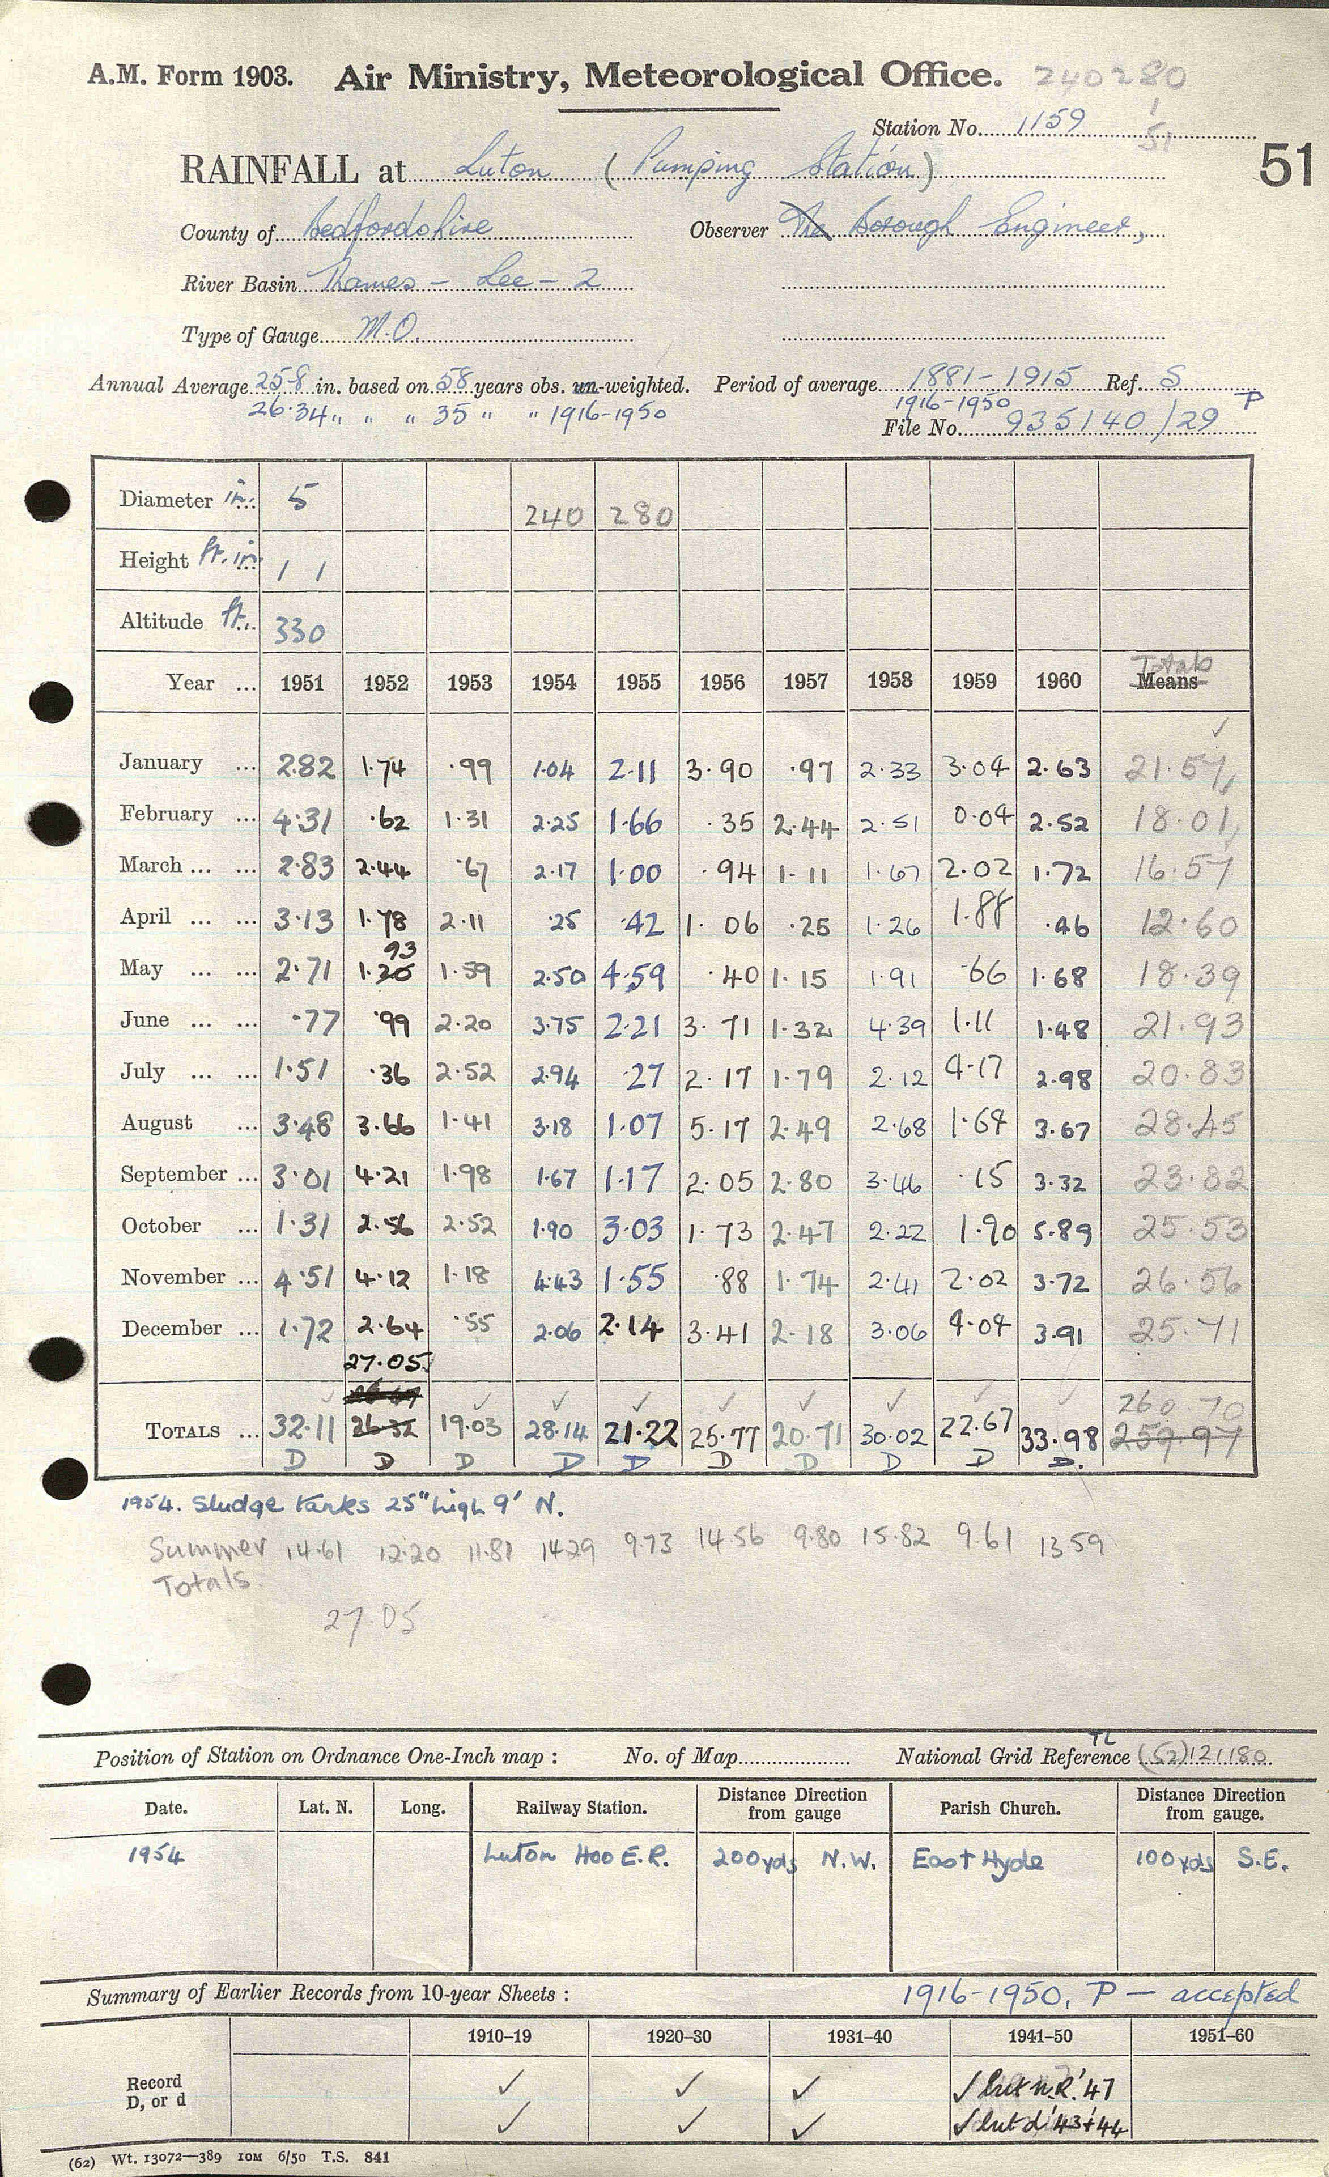 A.M. Form 1903. Air Ministry, Meteorological Office. 240280
1
51
Station No. 1159
51
RAINFALL at Luton (Pumping Station)
County of Bedfordshire Observer The Borough Engineer,
River Basin Thames - Lee - 2
Type of Gauge M.O.
Annual Average 25.8 in. based on 58 years obs. un-weighted. Period of average 1881-1915 Ref. S
26.34 " " " 35 " " 1916-1950 1916-1950 P
File No. 935140/29
Diameter in. 5 240 280
Height ft. in. 1 1
Altitude ft. 330
Totals
Year ... 1951 1952 1953 1954 1955 1956 1957 1958 1959 1960 Means
✓
January ... 2.82 1.74 .99 1.04 2.11 3.90 .97 2.33 3.04 2.63 21.57
February ... 4.31 .62 1.31 2.25 1.66 .35 2.44 2.51 0.04 2.52 18.01
March ... ... 2.83 2.44 .67 2.17 1.00 .94 1.11 1.67 2.02 1.72 16.57
April ... ... 3.13 1.78 2.11 .25 .42 1.06 .25 1.26 1.88 .46 12.60
93
May ... ... 2.71 1.20 1.59 2.50 4.59 .40 1.15 1.91 .66 1.68 18.39
June ... ... .77 .99 2.20 3.75 2.21 3.71 1.32 4.39 1.11 1.48 21.93
July ... ... 1.51 .36 2.52 2.94 .27 2.17 1.79 2.12 4.17 2.98 20.83
August ... 3.48 3.66 1.41 3.18 1.07 5.17 2.49 2.68 1.64 3.67 28.45
September ... 3.01 4.21 1.98 1.67 1.17 2.05 2.80 3.46 .15 3.32 23.82
October ... 1.31 2.56 2.52 1.90 3.03 1.73 2.47 2.22 1.90 5.89 25.53
November ... 4.51 4.12 1.18 4.43 1.55 .88 1.74 2.41 2.02 3.72 26.56
December ... 1.72 2.64 .55 2.06 2.14 3.41 2.18 3.06 4.04 3.91 25.71
27.05
✓ ✓ ✓ ✓ ✓ ✓ ✓ ✓ ✓ 260.70
TOTALS ... 32.11 26.32 19.03 28.14 21.22 25.77 20.71 30.02 22.67 33.98 259.97
D D D D D D D D D D.
1954. Sludge tanks 25" high 9' N.
Summer 14.61 12.20 11.81 14.29 9.73 14.56 9.80 15.82 9.61 13.59
Totals.
27.05
TL
Position of Station on Ordnance One-Inch map : No. of Map National Grid Reference (52)121180
Date. Lat. N. Long. Railway Station. Distance Direction from gauge Parish Church. Distance Direction from gauge.
1954 Luton Hoo E.R. 200yds N.W. East Hyde 100yds S.E.
Summary of Earlier Records from 10-year Sheets : 1916-1950, P - accepted
1910-19 1920-30 1931-40 1941-50 1951-60
Record ✓ ✓ ✓ ✓ but n.R.'47
D, or d ✓ ✓ ✓ ✓ but d '43+'44
(62) Wt. 13072—389 10M 6/50 T.S. 841